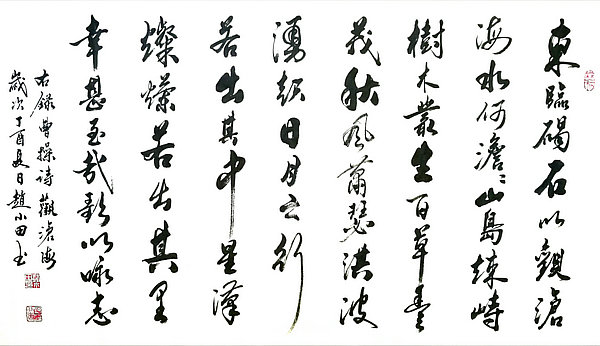 東臨碣石以觀滄
海水何澹〻山島竦峙
樹木叢生百草豐
茂秋風蕭瑟洪波
湧起日月之行
若出其中星漢
燦爛若出其里
幸甚至哉歌以詠志
右錄曹操诗觀滄海
歲次丁酉夏日趙小田书